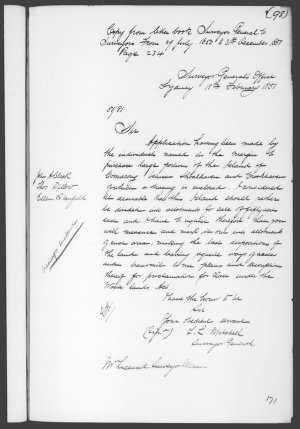 (98)
Copy from letter book Surveyor General to
Surveyors from 29 July 1850 to 31st December 1851
Page 234
Surveyor General's Office
Sydney 18th February 1851
51/81
Sir
Application having been made by
the individuals named in the margin to
purchase large portions of the Island of
Comerong between Shoalhaven and Crookhaven
of which a tracing is enclosed. I consider
it desirable that this Island should rather
be divided into allotments for sale of
each and I have to request therefore that you
will measure and mark its own allotment
of such area, making the best dispositions of
the land and leaving requisite ways of access
and transmit to me plans and descriptions
thereof for proclamation for Sale under the
Waste Lands Act
I have the honor to be
Sir
Your obedient servant
T. L. Mitchell
Surveyor General
Mr Licensed Surveyor
171